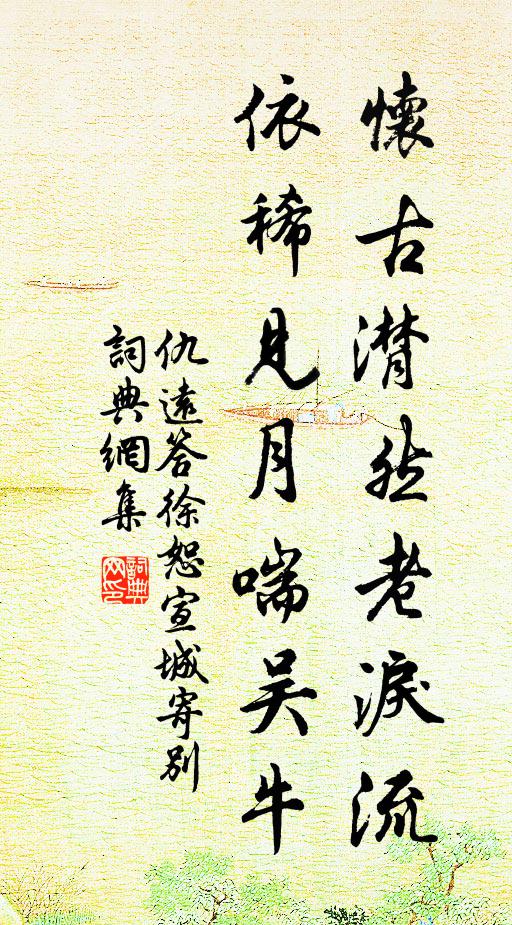 懷古潸然老淚流
依稀見月喘吳牛
仇遠答徐恕宣城寄別
詞典網集
詞典网印